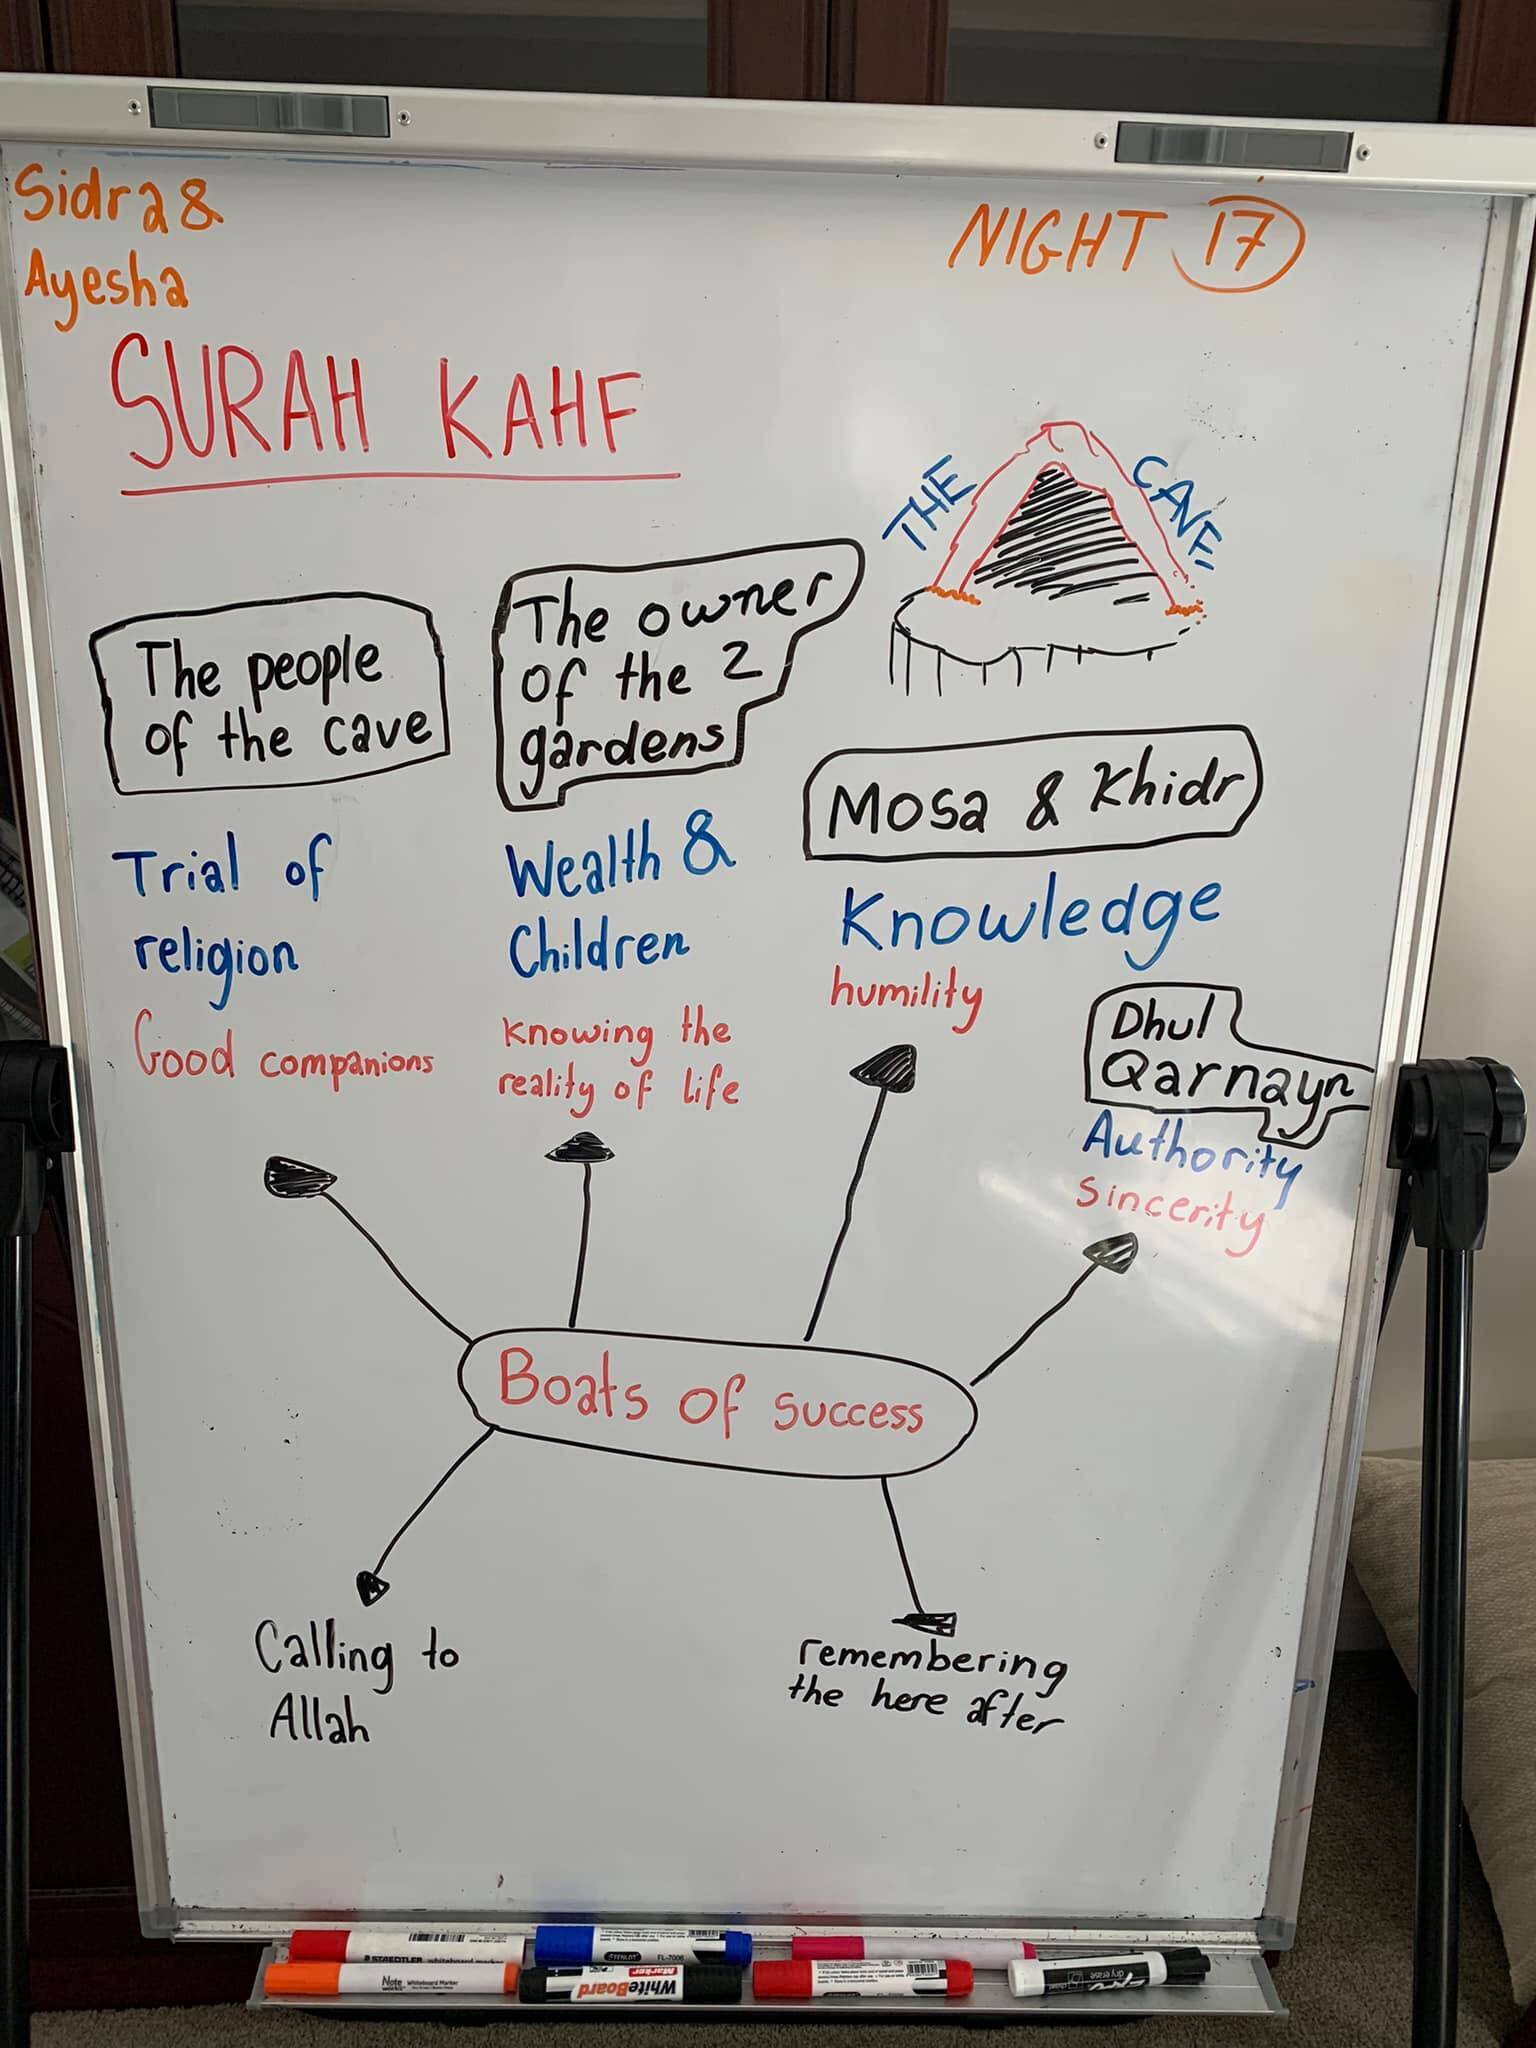 Sidra &
Ayesha
NIGHT 17
SURAH KAHF
THE CAVE
The people
of the cave
Trial of
religion
Good companions
The owner
of the 2
gardens
Wealth &
Children
Knowing the
reality of life
Mosa & Khidr
Knowledge
humility
Dhul
Qarnayn
Authority
sincerity
Boats of success
Calling to
Allah
remembering
the here after
STAEDTLER whiteboard marker
FL-7006
Note
works
Whiteboard Marker
WhiteBoard
Marker
dry erase